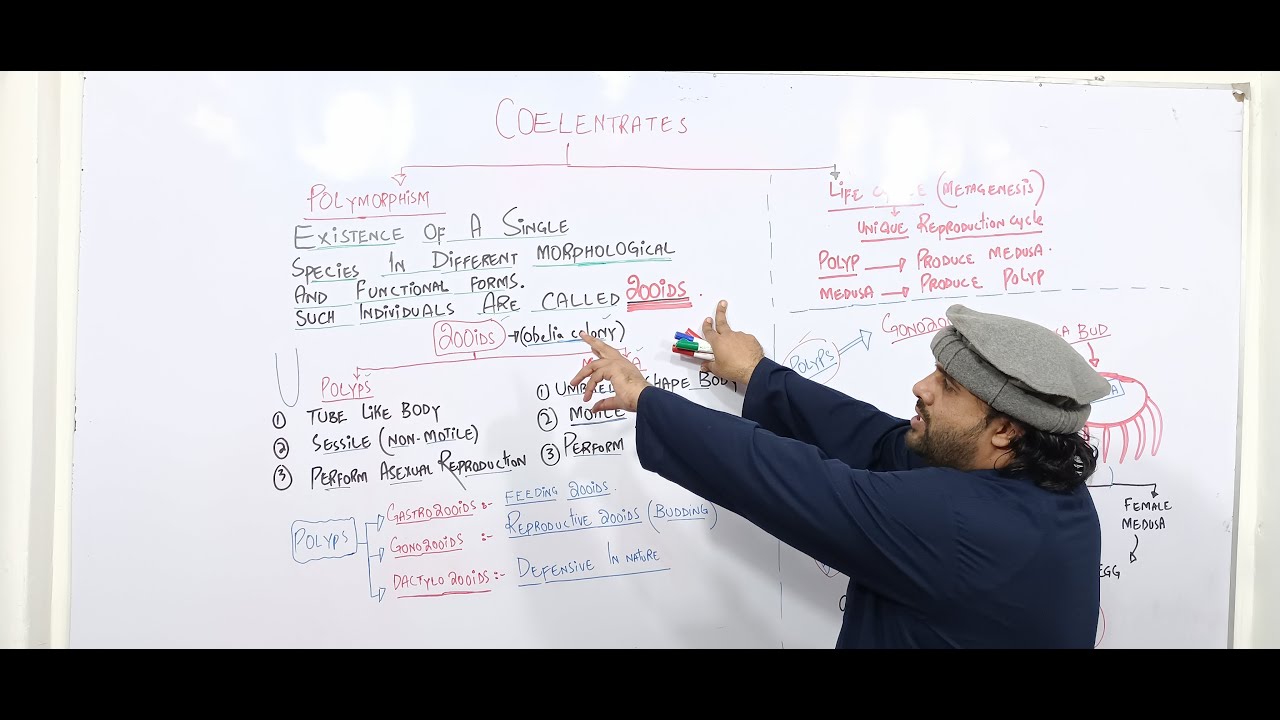 COELENTRATES
POLYMORPHISM
EXISTENCE OF A SINGLE
SPECIES IN DIFFERENT MORPHOLOGICAL
AND FUNCTIONAL FORMS.
SUCH INDIVIDUALS ARE CALLED ZOOIDS.
ZOOIDS → (obelia colony)
POLYPS
① TUBE LIKE BODY
② SESSILE (NON-MOTILE)
③ PERFORM ASEXUAL REPRODUCTION
① SHAPE BODY
② MOTILE
③ PERFORM
POLYPS
GASTROZOOIDS :- FEEDING ZOOIDS.
GONOZOOIDS :- REPRODUCTIVE ZOOIDS (BUDDING)
DACTYLOZOOIDS :- DEFENSIVE IN NATURE
LIFE (METAGENESIS)
UNIQUE REPRODUCTION CYCLE
POLYP → PRODUCE MEDUSA.
MEDUSA → PRODUCE POLYP
POLYPS
BUD
FEMALE
MEDUSA
EGG